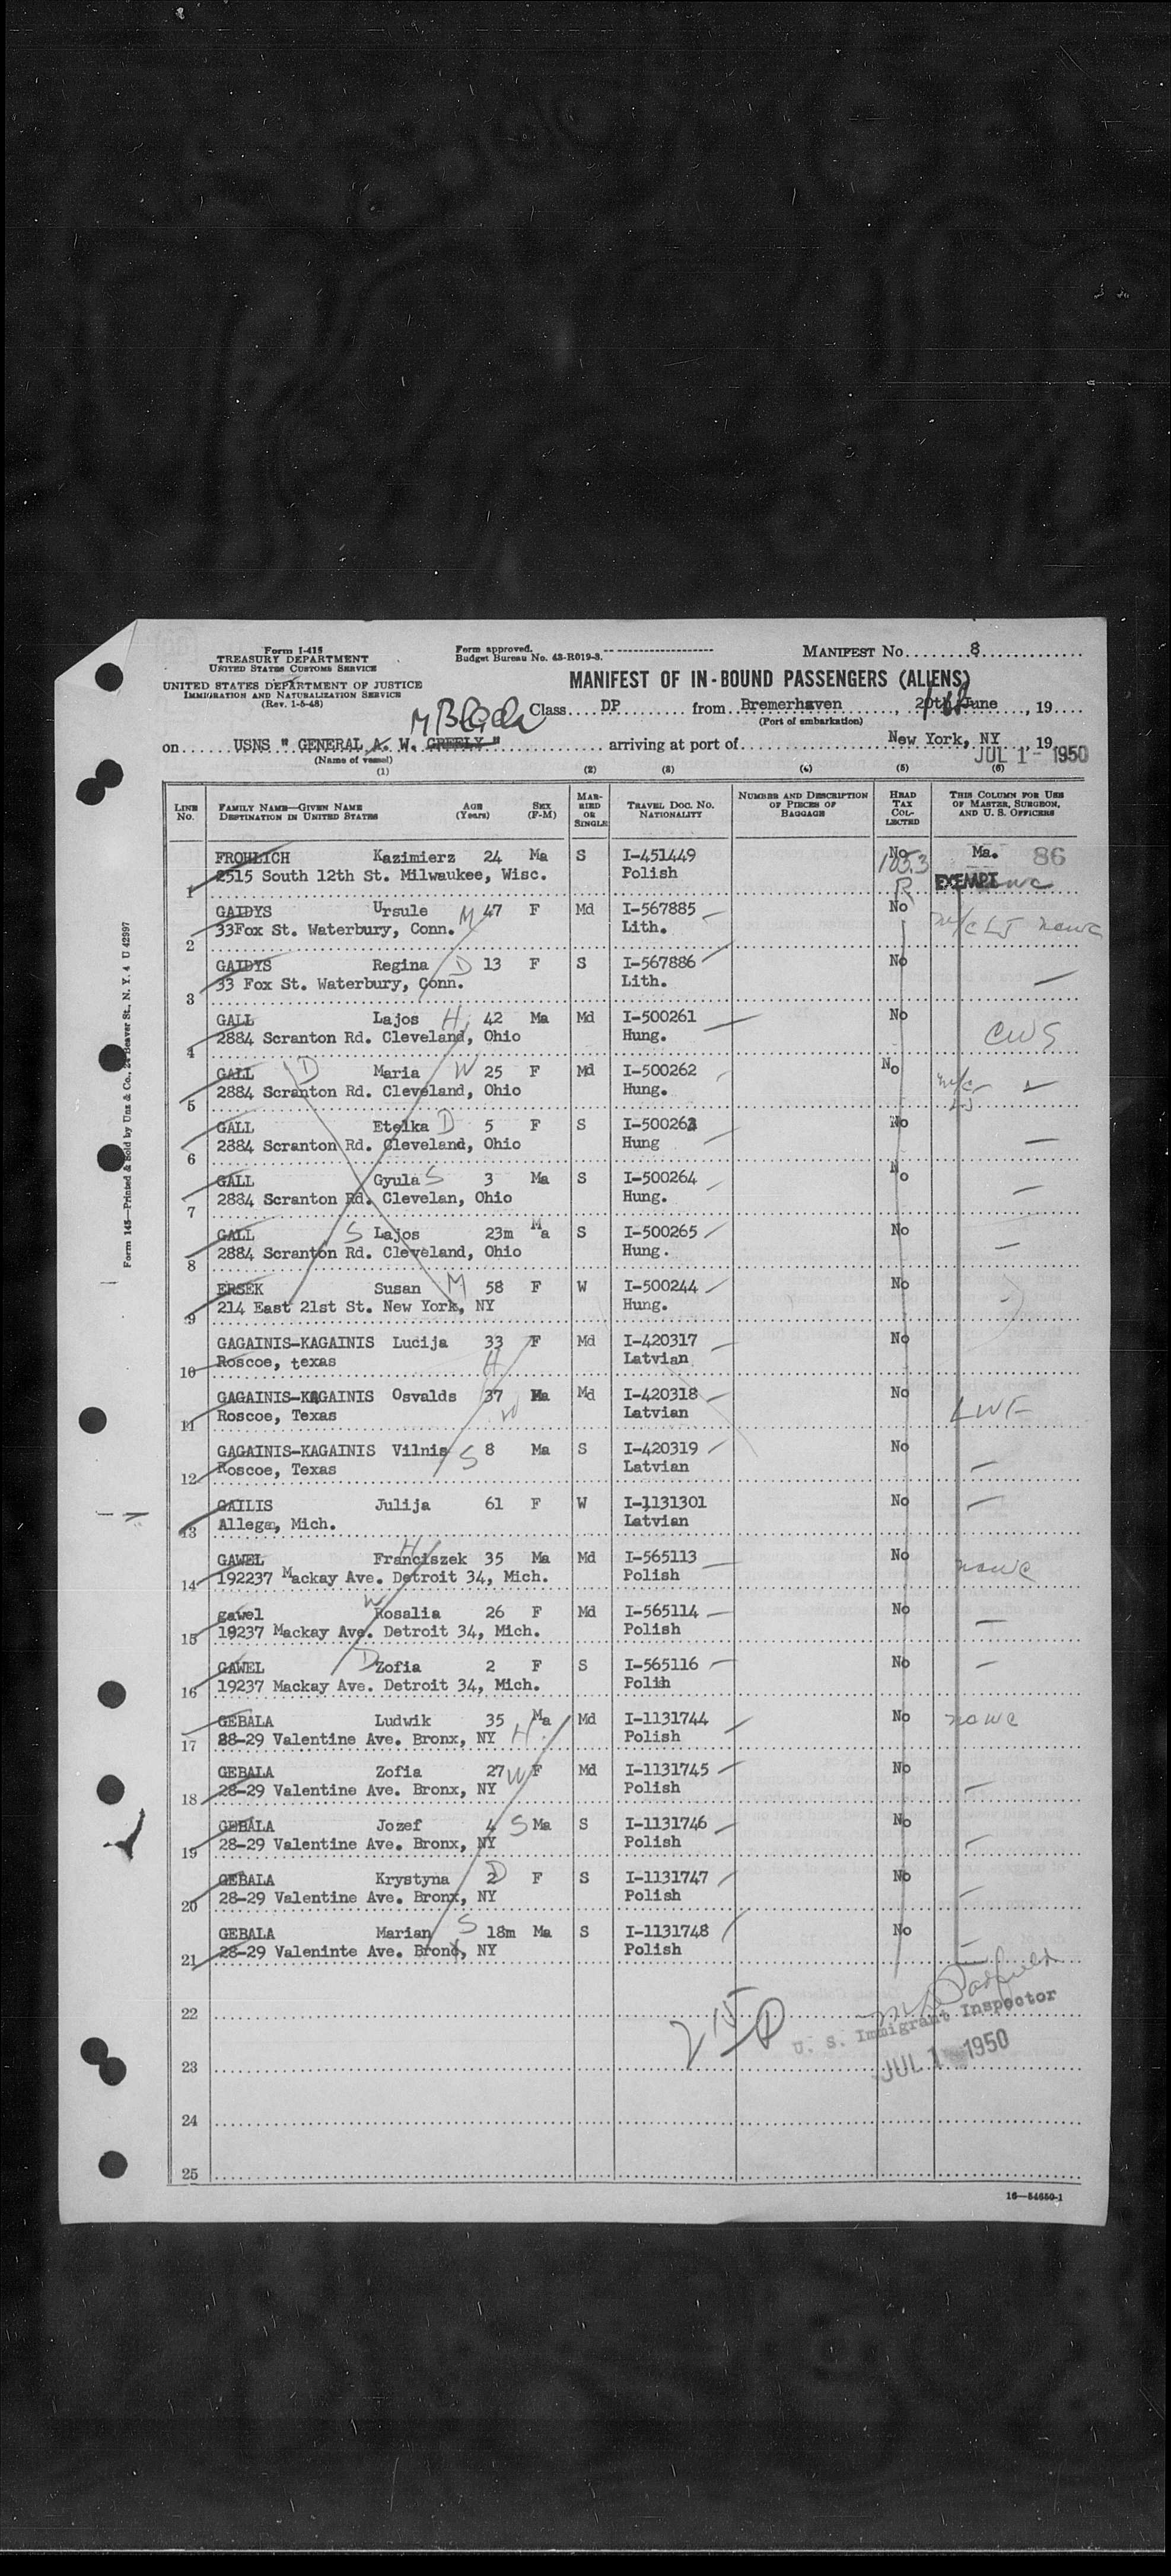 Form I-415
TREASURY DEPARTMENT
UNITED STATES CUSTOMS SERVICE
UNITED STATES DEPARTMENT OF JUSTICE
IMMIGRATION AND NATURALIZATION SERVICE
(Rev. 1-5-48)
Form approved.
Budget Bureau No. 43-R019-3.
MANIFEST No. 8
MANIFEST OF IN-BOUND PASSENGERS (ALIENS)
Class DP from Bremerhaven, 20th June, 19
(Port of embarkation)
M Black
on USNS " GENERAL A. W. GREELY " arriving at port of New York, NY, 19
(Name of vessel)
JUL 1 - 1950
(1) (2) (3) (4) (5) (6)
LINE No. FAMILY NAME—GIVEN NAME DESTINATION IN UNITED STATES AGE (Years) SEX (F-M) MARRIED OR SINGLE TRAVEL DOC. No. NATIONALITY NUMBER AND DESCRIPTION OF PIECES OF BAGGAGE HEAD TAX COLLECTED THIS COLUMN FOR USE OF MASTER, SURGEON, AND U. S. OFFICERS
FROHLICH Kazimierz 24 Ma S I-451449 No Ma. 86
1 2515 South 12th St. Milwaukee, Wisc. Polish R EXEMPT
GAIDYS Ursule M 47 F Md I-567885 No
2 33Fox St. Waterbury, Conn. Lith.
GAIDYS Regina D 13 F S I-567886 No
3 33 Fox St. Waterbury, Conn. Lith.
GALL Lajos H 42 Ma Md I-500261 No
4 2884 Scranton Rd. Cleveland, Ohio Hung. CWS
GALL D Maria W 25 F Md I-500262 No
5 2884 Scranton Rd. Cleveland, Ohio Hung.
GALL Etelka D 5 F S I-500263 No
6 2884 Scranton Rd. Cleveland, Ohio Hung
GALL Gyula S 3 Ma S I-500264 No
7 2884 Scranton Rd. Clevelan, Ohio Hung.
GALL S Lajos 23m Ma S I-500265 No
8 2884 Scranton Rd. Cleveland, Ohio Hung.
ERSEK Susan M 58 F W I-500244 No
9 214 East 21st St. New York, NY Hung.
GAGAINIS-KAGAINIS Lucija 33 F Md I-420317 No
10 Roscoe, texas H Latvian
GAGAINIS-KAGAINIS Osvalds 37 Ma Md I-420318 No
11 Roscoe, Texas W Latvian LWF
GAGAINIS-KAGAINIS Vilnis S 8 Ma S I-420319 No
12 Roscoe, Texas Latvian
GAILIS Julija 61 F W I-1131301 No
13 Allegan, Mich. Latvian
GAWEL H Franciszek 35 Ma Md I-565113 No
14 192237 Mackay Ave. Detroit 34, Mich. Polish NCWC
gawel W Rosalia 26 F Md I-565114 No
15 19237 Mackay Ave. Detroit 34, Mich. Polish
GAWEL D Zofia 2 F S I-565116 No
16 19237 Mackay Ave. Detroit 34, Mich. Polih
GEBALA Ludwik 35 Ma Md I-1131744 No NCWC
17 28-29 Valentine Ave. Bronx, NY H Polish
GEBALA Zofia 27 W F Md I-1131745 No
18 28-29 Valentine Ave. Bronx, NY Polish
GEBALA Jozef 4 S Ma S I-1131746 No
19 28-29 Valentine Ave. Bronx, NY Polish
GEBALA Krystyna 2 D F S I-1131747 No
20 28-29 Valentine Ave. Bronx, NY Polish
GEBALA Marian S 18m Ma S I-1131748 No
21 28-29 Valeninte Ave. Bronx, NY Polish
22
U. S. Immigrant Inspector
23
JUL 1 1950
24
25
16—54650-1
Form 145—Printed & Sold by Unz & Co., 24 Beaver St., N. Y. 4 U 42997